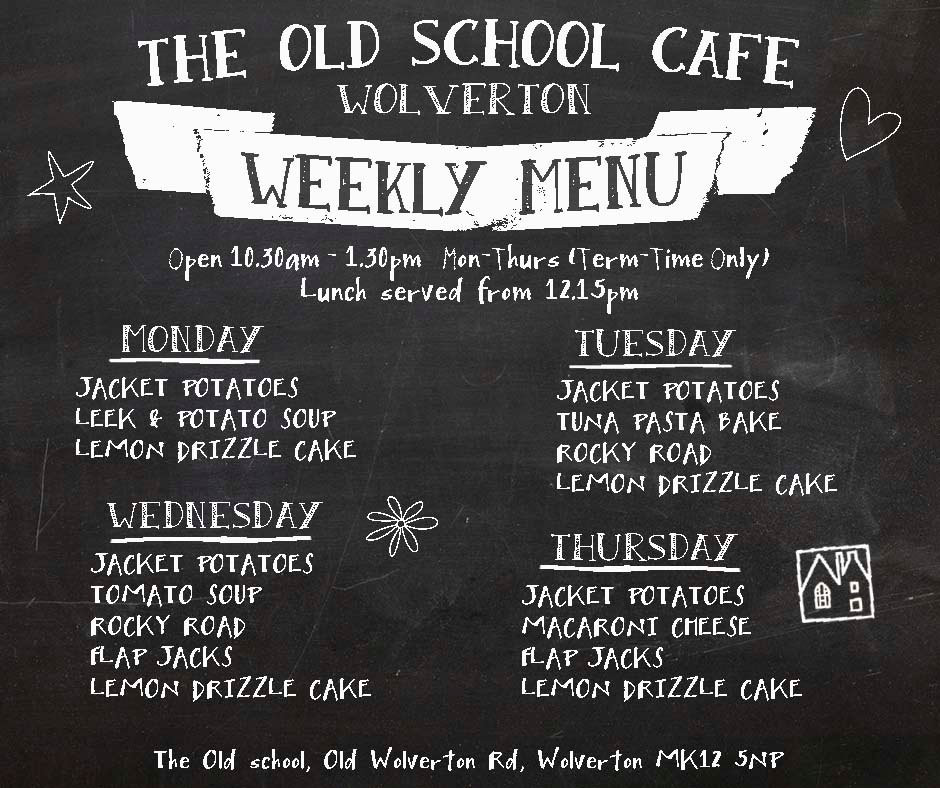 THE OLD SCHOOL CAFE
WOLVERTON
WEEKLY MENU
Open 10.30am - 1.30pm Mon-Thurs (Term-Time Only)
Lunch served from 12.15pm
MONDAY
JACKET POTATOES
LEEK & POTATO SOUP
LEMON DRIZZLE CAKE
TUESDAY
JACKET POTATOES
TUNA PASTA BAKE
ROCKY ROAD
LEMON DRIZZLE CAKE
WEDNESDAY
JACKET POTATOES
TOMATO SOUP
ROCKY ROAD
FLAP JACKS
LEMON DRIZZLE CAKE
THURSDAY
JACKET POTATOES
MACARONI CHEESE
FLAP JACKS
LEMON DRIZZLE CAKE
The Old school, Old Wolverton Rd, Wolverton MK12 5NP